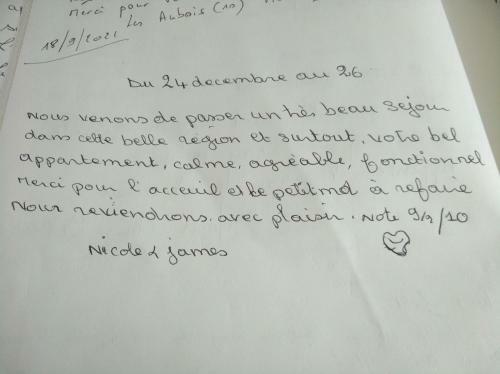 Merci pour
Les Aubois (10)
18/9/2021
Du 24 decembre au 26
Nous venons de passer un très beau sejour
dans cette belle région et surtout, votre bel
appartement, calme, agréable, fonctionnel
Merci pour l'acceuil et le petit mot à refaire
Nous reviendrons avec plaisir. Note 9/10
Nicole & james